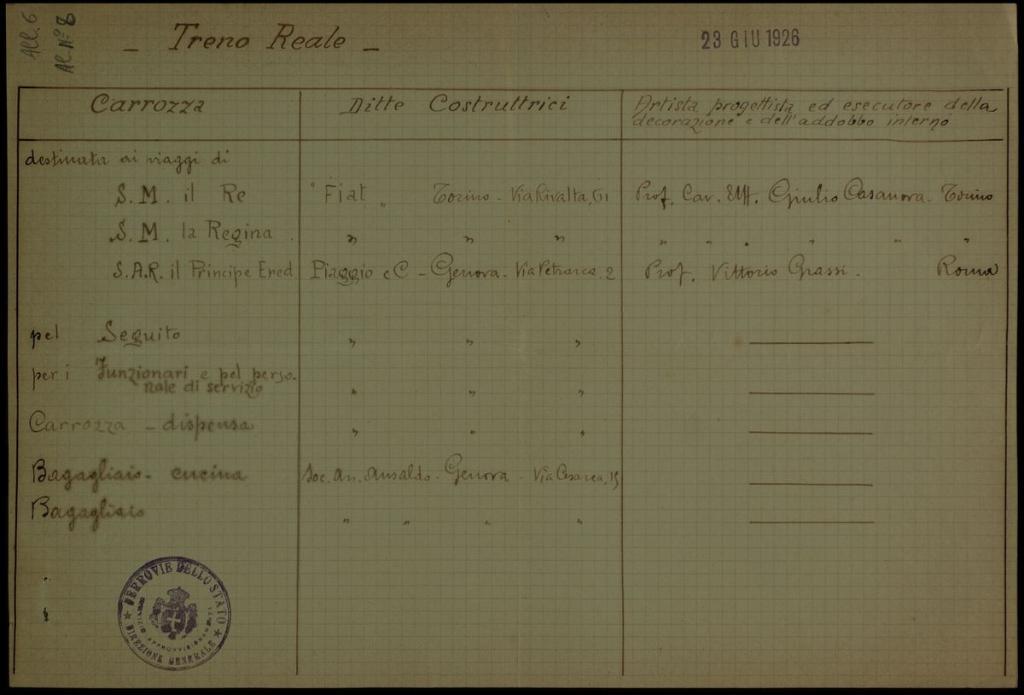 All. 6
Al. Nº 8
- Treno Reale -
23 GIU 1926
Carrozza
Ditte Costruttrici
Artista progettista ed esecutore della
decorazione e dell'addobbo interno
destinata ai viaggi di
S. M. il Re " Fiat " Torino - Via Rivalta, 61 Prof. Cav. Uff. Giulio Casanova - Torino
S. M. la Regina " " " " " " " " "
S.A.R. il Principe Ered. Piaggio e C - Genova - Via Petrarca, 2 Prof. Vittorio Grassi - Roma
pel Seguito " " "
per i Funzionari e pel perso-
nale di servizio " " "
Carrozza - dispensa " " "
Bagagliaio - cucina Soc. An. Ansaldo - Genova - Via Cesarea, 15
Bagagliaio " " " "
FERROVIE DELLO STATO
DIREZIONE GENERALE